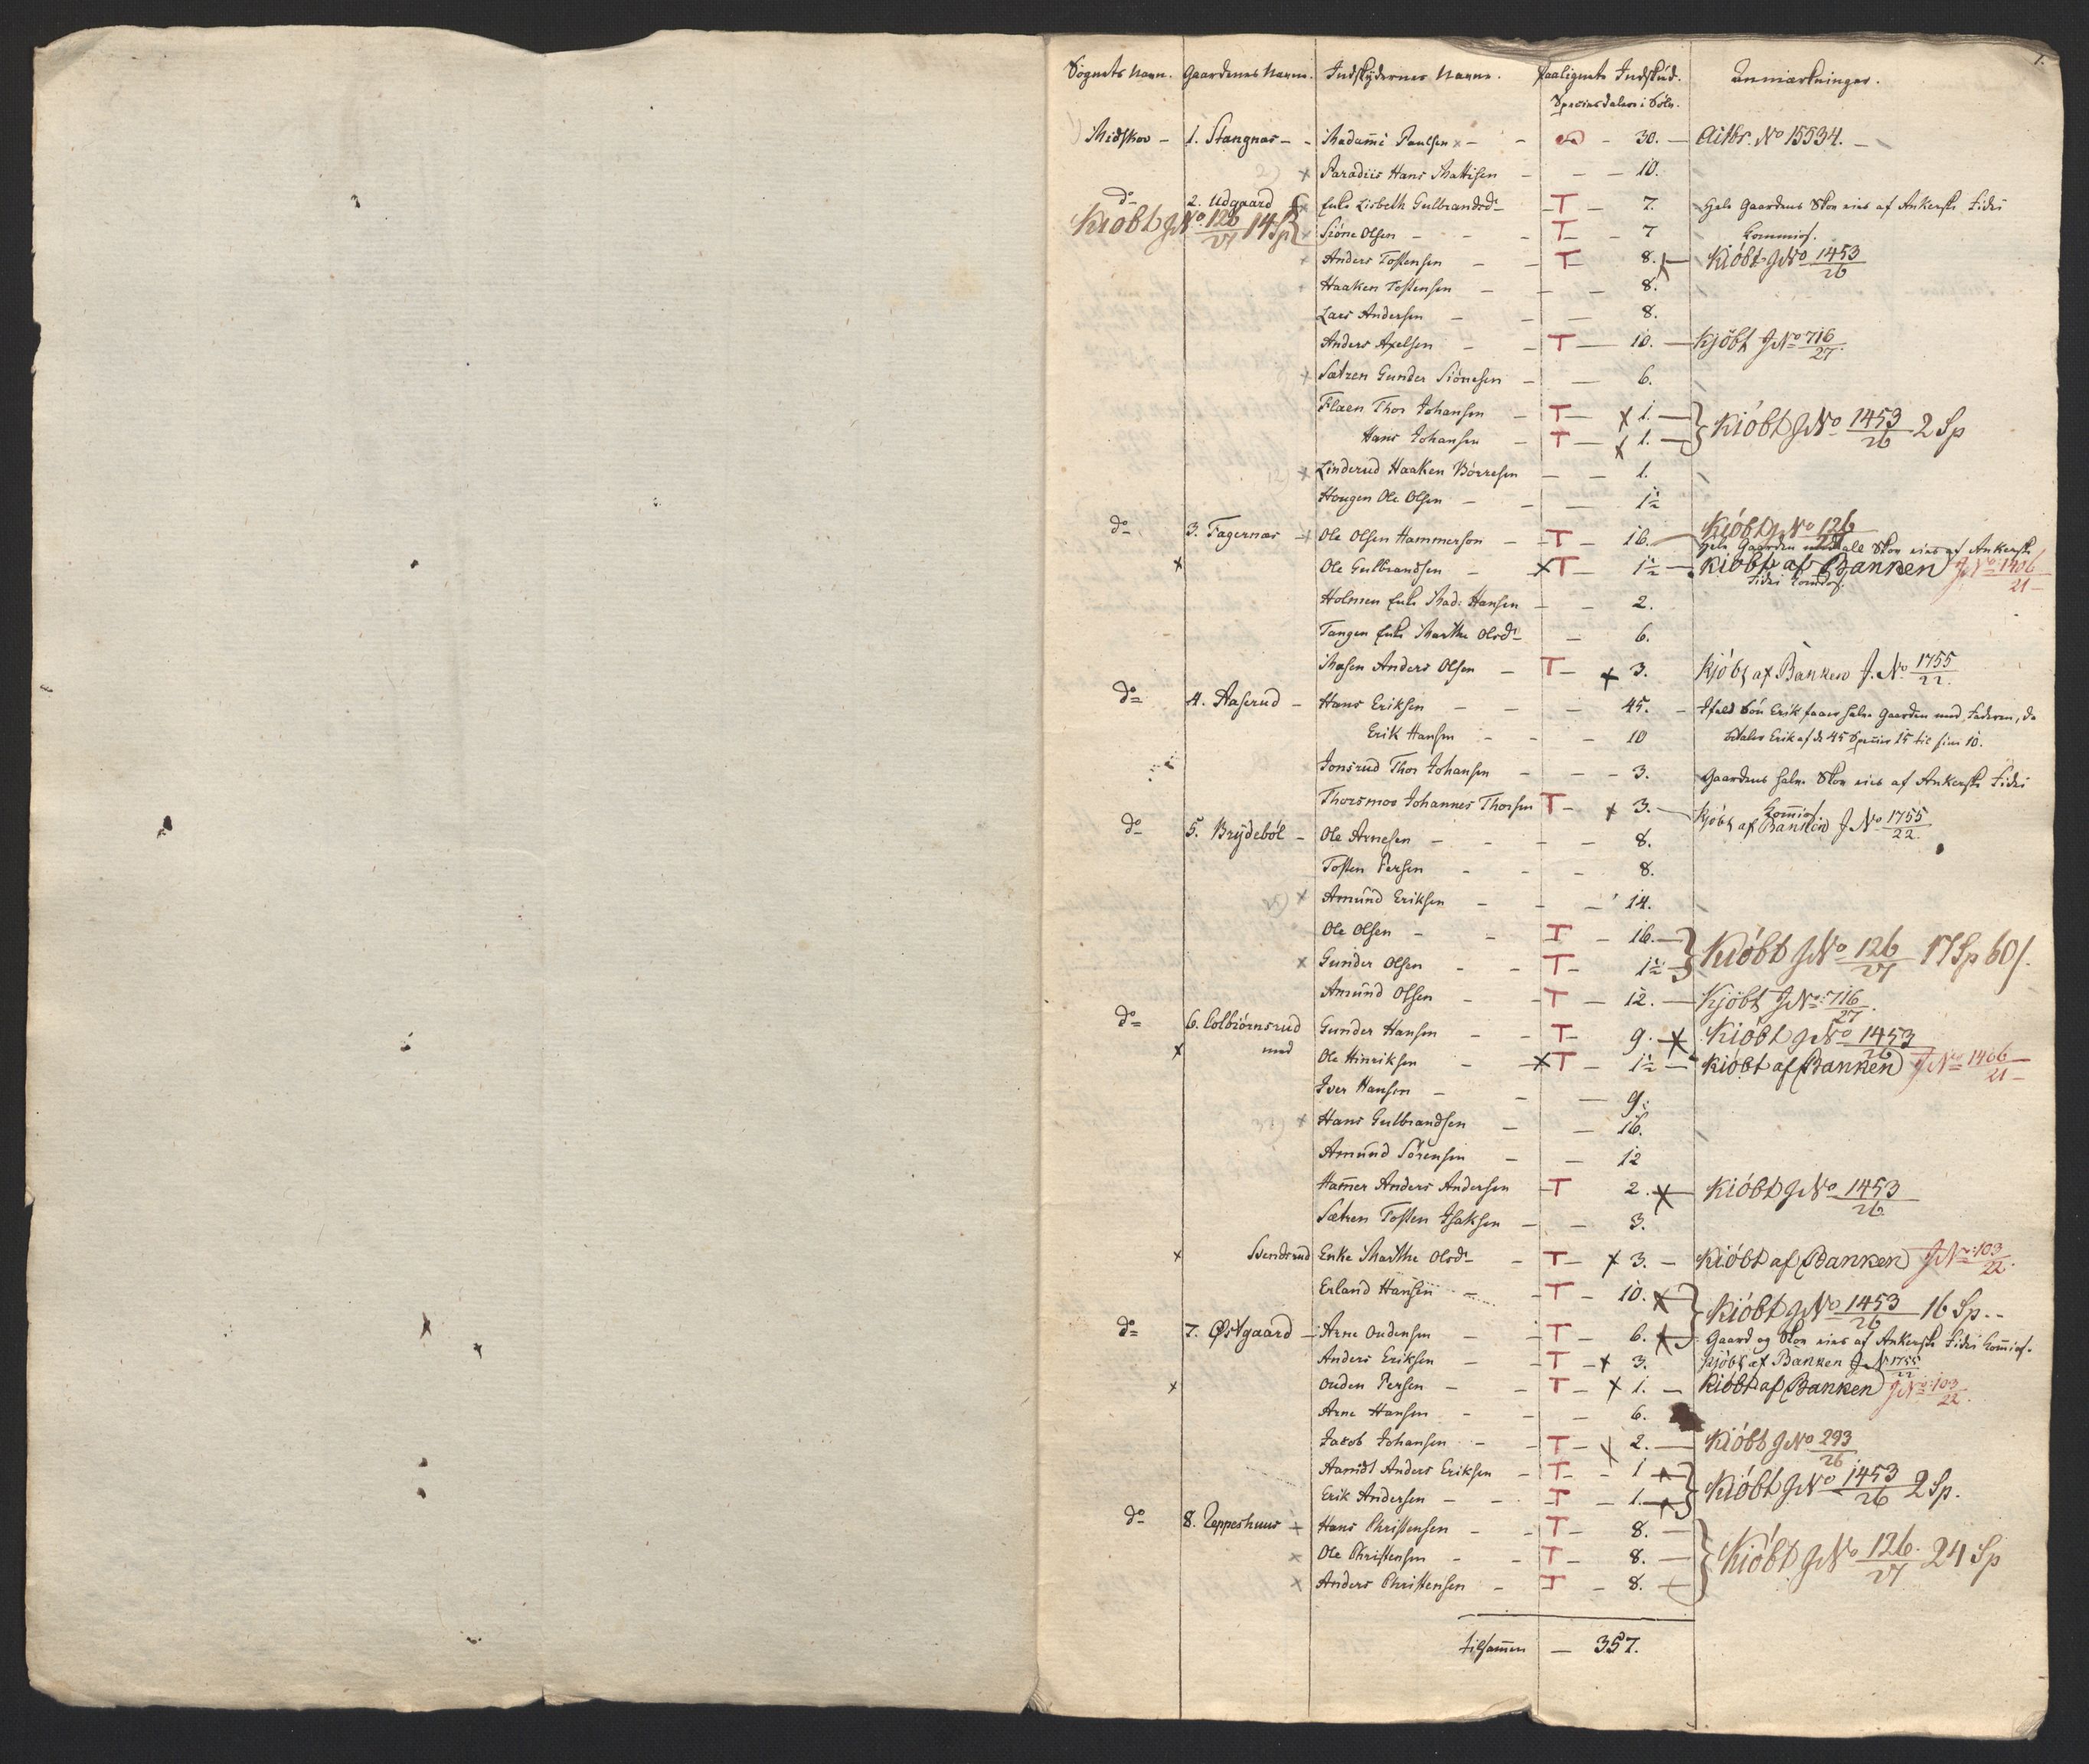 1.
Sognets Navn. Gaardenes Navne. Indskydernes Navne. Paalignete Indskud. Anmærkninger.
Speciesdaler i Sölv.
Midskov - 1. Stangnæs - - Madame Paulsen x - - 30. - Aitbr. No 15534. -
2) x Paradiis Hans Mattisen - - - 10.
do 2. Udgaard x Enke Lisbeth Gulbrandsdr - T - 7. Hele Gaardens Skov eies af Ankerske Fidei
Kiöbt J No 126/27 14 Sp x Siöne Olsen - - - T - - 7 Commiss.
Anders Tostensen - - T - 8. Kiöbt J No 1453/26
Haaken Tostensen - - - 8.
Lars Andersen - - - 8.
Anders Axelsen - - T - 10. - Kjöbt J No 716/27
x Sætren Gunder Siönesen - - 6.
Flaen Thor Johansen - T - x 1. - } Kiöbt J No 1453/26 2 Sp
Hans Johansen - T - x 1. -
12) x Linderud Haaken Börresen - - 1.
Haugen Ole Olsen - - - 1½
do 3. Fagernæs - x Ole Olsen Hammerson - T - 16. Kiöbt J No 126/27
Hele Gaarden med all Skov eies af Ankerske
x Ole Gulbrandsen - x T - 1½ - Kiöbt af Banken J No 1406/21
Fidei Comiss.
Holmen Enke Mad: Hansen - - 2.
Tangen Enke Marthe Olsdr - - 6.
Moesen Anders Olsen - T - x 3. Kjöbt af Banken J. No 1755/22.
do 4. Aaserud - Hans Eriksen - - - 45. - Ifald Sön Erik faaer halve Gaarden med Faderen, da
Erik Hansen - - - 10 betaler Erik af de 45 Species 15 til sine 10.
Jonsrud Thor Johansen - - - 3. Gaardens halve Skov eies af Ankerske Fidei
Thorsmoe Johannes Thorsen T - x 3. - Commiss.
Kjöbt af Banken J No 1755/22.
do 5. Brydeböl - Ole Arnesen - - - - 8.
Tosten Persen - - - 8.
x Amund Eriksen - - - 14.
Ole Olsen - - T - 16. - } Kiöbt J No 126/27 17 Sp 60 s.
x Gunder Olsen - - T - 1½ -
Amund Olsen - - T - 12. - Kjöbt J No 716/27.
do 6. Colbiörnsrud Gunder Hansen - - T - 9. - x Kiöbt J No 1453/26
x med Ole Hinriksen - - x T - 1½ - Kiöbt af Banken J No 1406/21
Iver Hansen - - - 9.
x Hans Gulbrandsen - - 16.
Amund Sörensen - - 12
Hamer Anders Andersen - T 2. x Kiöbt J No 1453/26
Sætren Tosten Isaksen - - 3.
x Svendsrud Enke Marthe Olsdr - - T - x 3. - Kiöbt af Banken J No 103/22.
Erland Hansen - - T - 10. x } Kiöbt J No 1453/26 16 Sp. -
do 7. Östgaard - Arne Oudensen - - T - 6. x Gaard og Skov eies af Ankerske Fidei Commiss.
Anders Eriksen - - T - x 3. Kjöbt af Banken J No 1755/22
x Ouden Persen - - T - x 1. - Kiöbt af Banken J No 103/22.
Arne Hansen - - - 6.
Jacob Johansen - - T - x 2. - Kiöbt J No 293/26
Anders Eriksen - T - - 1 x } Kiöbt J No 1453/26 2 Sp.
Erik Andersen - - - T - 1. x
do 8. Zeppeshuus x Hans Christensen - - T - 8. - } Kiöbt J No 126/27 24 Sp
x Ole Christensen - - T - 8. -
x Anders Christensen - T - 8. -
tilsammen - 357.